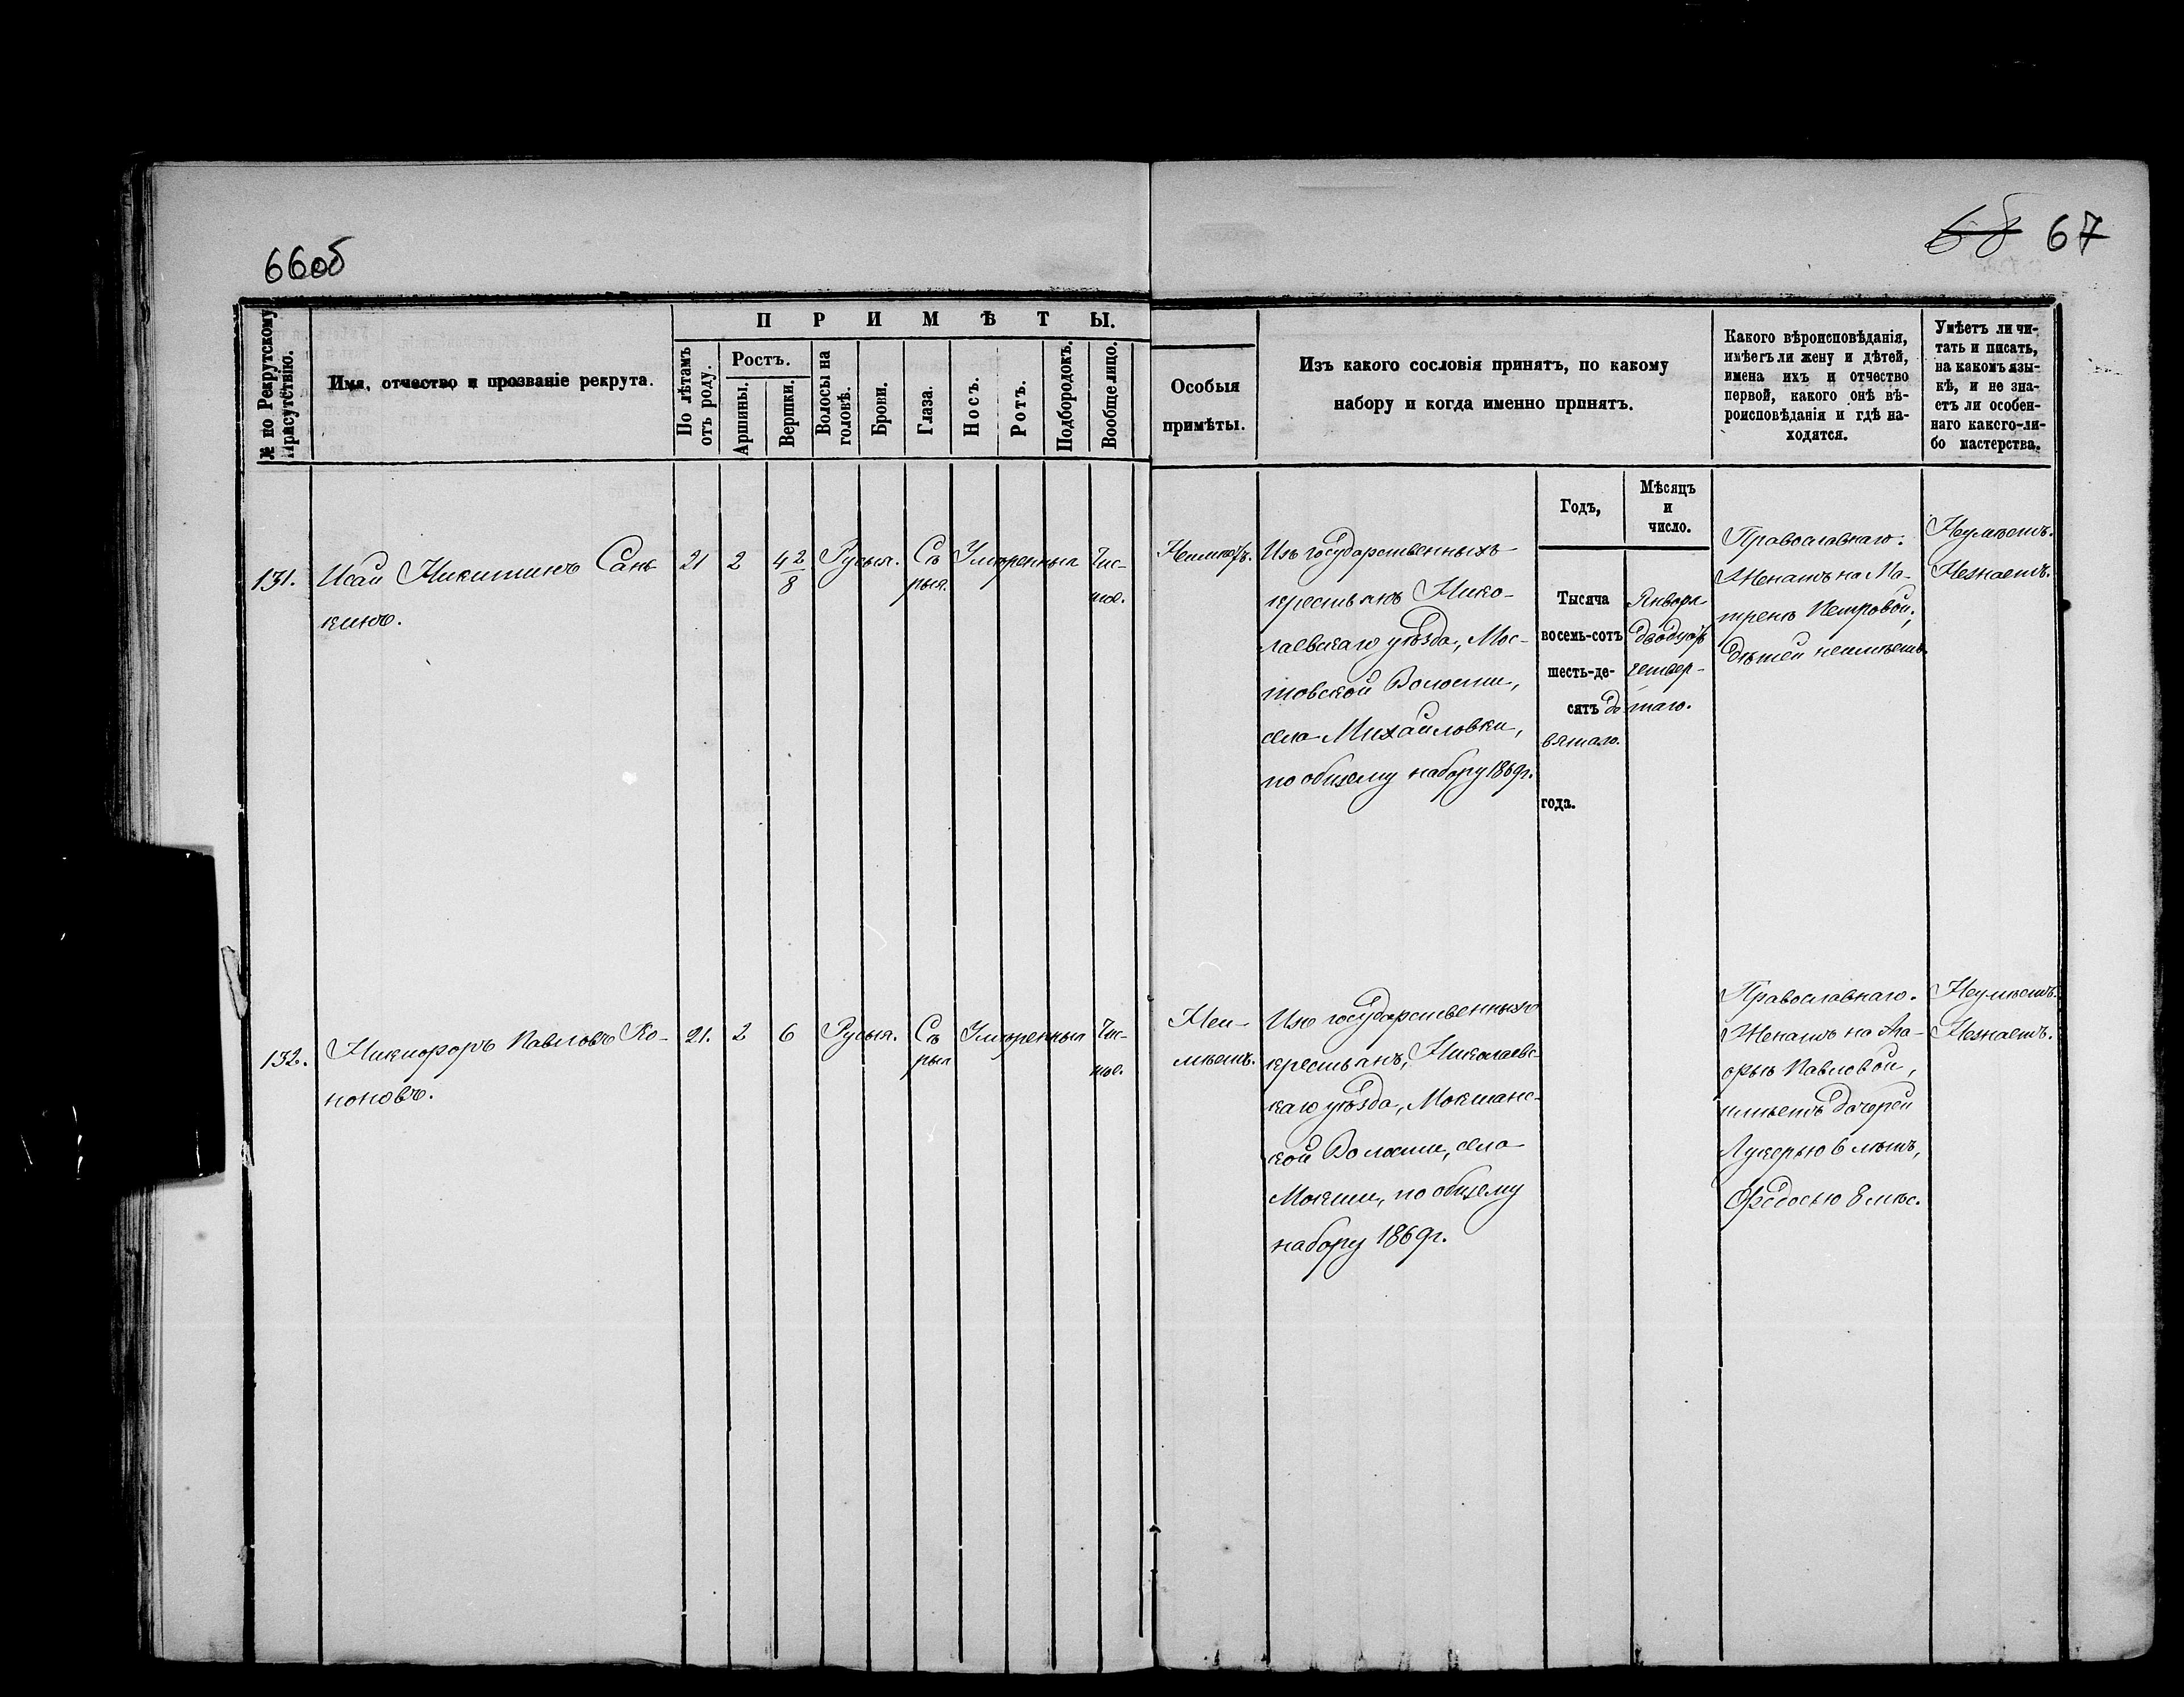 66об
68 67
№ по Рекрутскому Присутствію.
Имя, отчество и прозваніе рекрута.
ПРИМѢТЫ.
По лѣтамъ отъ роду.
Ростъ.
Аршины.
Вершки.
Волосы на головѣ.
Брови.
Глаза.
Носъ.
Ротъ.
Подбородокъ.
Вообще лицо.
Особыя
примѣты.
Изъ какого сословія принятъ, по какому
набору и когда именно принятъ.
Какого вѣроисповѣданія,
имѣетъ ли жену и дѣтей,
имена ихъ и отчество
первой, какого онѣ вѣ-
роисповѣданія и гдѣ на-
ходятся.
Умѣетъ ли чи-
тать и писать,
на какомъ язы-
кѣ, и не зна-
етъ ли особен-
наго какого-ли-
бо мастерства.
Годъ,
Мѣсяцъ
и
число.
131.
Исай Никитинъ Сань
кинъ.
21
2
4 2/8
Русыя.
Сѣ
рыя.
Умѣренныя
Чис-
тое.
Изъ государственныхъ
крестьянъ Нико-
лаевскаго уѣзда, Мос-
товской Волости,
села Михайловки,
по общему набору 1869г.
Тысяча
восемь-сотъ
шесть-де-
сятъ де
вятаго.
года.
Января
двадцать
четвер-
таго.
Православнаго.
Женатъ на Ма-
тренѣ Петровой,
дѣтей неимѣетъ.
Неумѣетъ.
Незнаетъ.
132.
Никифоръ Павловъ Ко-
ноновъ.
21.
2
6
Русыя.
Сѣ
рыя
Умѣренныя
Чис-
тое.
Неи-
мѣетъ.
Изъ государственныхъ
крестьянъ, Николаевс-
каго уѣзда, Мокшанс-
кой Волости, села
Мокши, по общему
набору 1869г.
Православнаго.
Женатъ на Ма-
рьѣ Павловой,
имѣетъ дочерей
Лукерью 6 лѣтъ,
Федосью 8 мѣс.
Неумѣетъ.
Незнаетъ.